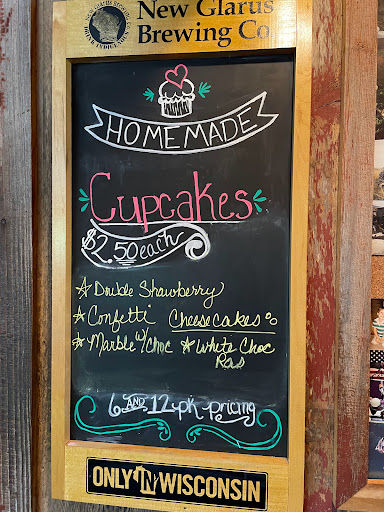 New Glarus
Brewing Co
HOMEMADE
Cupcakes
$2.50 each
☆ Double Strawberry
☆ Confetti Cheesecakes:
☆ Marble w/choc ☆ White Choc
Ras
6 AND 12-pk-pricing
ONLY IN WISCONSIN